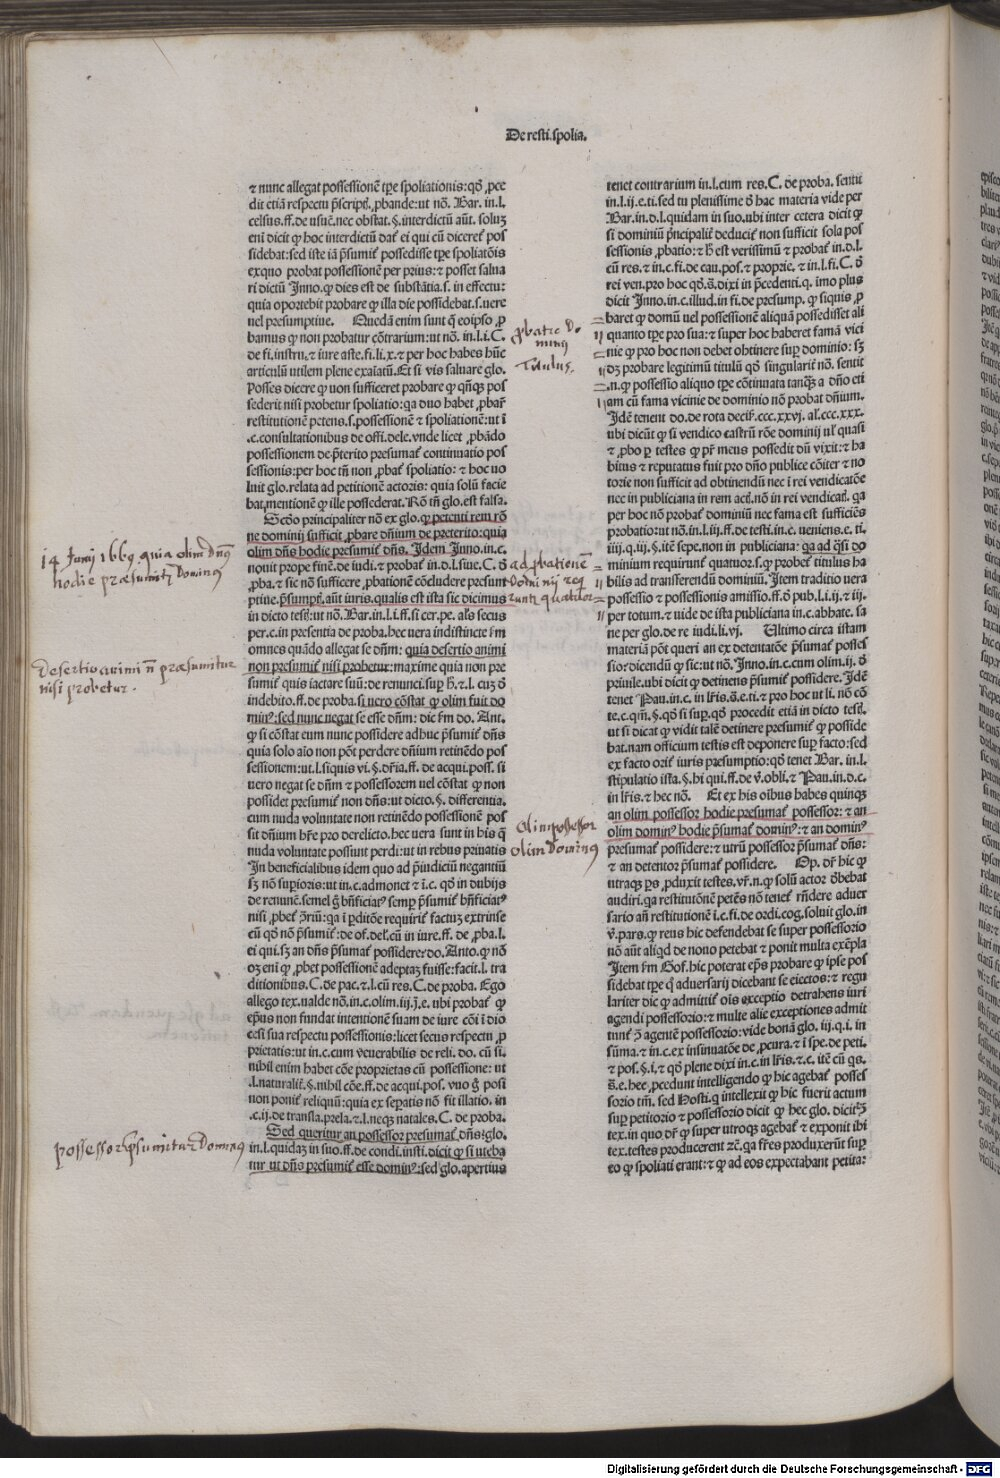 De resti. spolia.
⁊ nunc allegat possessionē tꝑe spoliationis: qđ ꝓce
dit etiā respectu p̄scripti. ꝓbande: ut nō. Bar. in.l.
celsus.ff.de usuc̄. nec obstat. §. interdictū aūt. soluꝫ
eni dicit ꝙ hoc interdictū daṫ ei qui cū diceret pos
sidebat: sed iste iā p̄sumiṫ possedisse tꝑe spoliatōis
exquo probat possessionē per prius: ⁊ posset salua
ri dictū Inno. ꝙ dies est de substātia. s. in effectu:
quia oportebit probare ꝙ illa die possidebat. s. uere
uel presumptiue. Quedā enim sunt q̄ eoipso ꝓ
bamus ꝙ non probatur cōtrarium: ut nō. in.l.i.C.
de fi. instru. ⁊ iure aste. fi. li. x. ⁊ per hoc habes hūc
articulū utilem plene exaīatū. Et si vis saluare glo.
Posses dicere ꝙ non sufficeret probare ꝙ qn̄qꝫ pos
sederit nisi probetur spoliatio: qa duo habet ꝓbar̄
restitutionē petens. s. possessionē ⁊ spoliationē: ut ī
.c. consultationibus de offi. dele. vnde licet ꝓbādo
possessionem de p̄terito presumat continuatio pos
sessionis: per hoc tn̄ non ꝓbaṫ spoliatio: ⁊ hoc uo
luit glo. relata ad petitionē actoris: quia solū facie
bat mentionē ꝙ ille possederat. Rō tn̄ glo. est falsa.
Secūdo principaliter nō ex glo. ꝙ petenti rem rō
ne dominii sufficit ꝓbare dn̄ium de preterito: quia
olim dn̄s hodie presumiṫ dn̄s. Idem Inno. in.c.
nouit prope finē. de iudi. ⁊ probaṫ in.d.l. siue. C. đ
ꝓba. ⁊ sic nō sufficere ꝓbationē cōcludere presum
ptiue. p̄sumpt̄. aūt iuris. qualis est ista sic dicimus
in dicto test̄: ut nō. Bar. in.l.i.ff. si cer. pe. als secus
per.c. in presentia de proba. hec uera indistincte s̄m
omnes quādo allegat se dn̄m: quia desertio animi
non presumiṫ nisi probetur: maxime quia non pre
sumiṫ quis iactare suū: de renunci. suꝑ h̄. ⁊.l. cuꝫ đ
indebito. ff. de proba. si uero cōstat ꝙ olim fuit do
minꝰ: sed nunc negat se esse dn̄m: dic s̄m do. Ant.
ꝙ si cōstat eum nunc possidere adhuc p̄sumiṫ dn̄s
quia solo aīo non pōt perdere dn̄ium retinēdo pos
sessionem: ut.l. siquis vi. §. dr̄ia. ff. de acqui. poss. si
uero negat se dn̄m ⁊ possessorem uel cōstat ꝙ non
possidet presumiṫ non dn̄s: ut dicto. §. differentia.
cum nuda voluntate non retinēdo possessionē pos
sit dn̄ium hr̄e pro derelicto. hec uera sunt in his q̄
nuda voluntate possunt perdi: ut in rebus priuatis
In beneficialibus idem quo ad p̄iudiciū negantiū
sꝫ nō supīoris: ut in.c. admonet ⁊ ī.c. qđ in dubijs
de renunc̄. semel ḡ bn̄ficiatꝰ semꝑ p̄sumiṫ bn̄ficiatꝰ
nisi ꝓbeṫ ꝯ̄riū: qa ī ꝑditōe requiriṫ factuꝫ extrinse
cū qđ nō p̄sumiṫ: de of. del. cū in iure. ff. de ꝓba. l.
ei qui. sꝫ an dn̄s p̄sumaṫ possidere: do. Anto. ꝙ nō
oꝫ eni ꝙ ꝓbet possessionē adeptaꝫ fuisse: facit. l. tra
ditionibus. C. de pac. ⁊.l. cū res. C. de proba. Ego
allego tex. ualde nō. in.c. olim. iij. j̄. e. ubi probaṫ ꝙ
ep̄us non fundat intentionē suam de iure cōi ī dio
cesi sua respectu possessionis: licet secus respectu ꝓ
prietatis: ut in.c. cum venerabilis de reli. do. cū si.
nihil enim habet cōe proprietas cū possessione: ut
.l. naturalit̄. §. nihil cōe. ff. de acqui. pos. vno ḡ posi
non poniṫ reliquū: quia ex seꝑatis nō fit illatio. in
.c. ij. de transla. prela. ⁊.l. neqꝫ natales. C. de proba.
Sed queritur an possessor presumaṫ dn̄s: glo.
in.l. quidaꝫ in suo. ff. de condi. insti. dicit ꝙ si uteba
tur ut dn̄s presumiṫ esse dominꝰ: sed glo. apertius
tenet contrarium in.l. cum res. C. de proba. sentit
in.l. ij. e. ti. sed tu plenissime đ hac materia vide per
Bar. in.d.l. quidam in suo. ubi inter cetera dicit ꝙ
si dominiū p̄ncipaliṫ deduciṫ non sufficit sola pos
sessionis ꝓbatio: ⁊ h̄ est verissimū ⁊ probaṫ in.d.l.
cū res. ⁊ in.c. fi. de cau. pos. ⁊ proprie. ⁊ in.l. fi. C. đ
rei ven. pro hoc qđ. s̄. dixi in p̄cedenti. q. imo plus
dicit Inno. in.c. illud. in fi. de presump. ꝙ siquis ꝓ
baret ꝙ domū uel possessionē aliquā possedisset ali
quanto tꝑe pro sua: ⁊ super hoc haberet famā vici
nie ꝙ pro hoc non debet obtinere suꝑ dominio: sꝫ
dꝫ probare legitimū titulū qđ singulariṫ nō. sentit
.n. ꝙ possessio aliquo tꝑe cōtinuata tanqꝫ a dn̄o eti
am cū fama vicinie de dominio nō probat dn̄ium.
Idē tenent do. de rota deciſ. ccc. xxvj. al. ccc. xxx.
ubi dicūt ꝙ si vendico castrū rōe dominij ul̄ quasi
⁊ ꝓbo ꝑ testes ꝙ pr̄ meus possedit dū vixit: ⁊ ha
bitus ⁊ reputatus fuit pro dn̄o publice cōiter ⁊ no
torie non sufficit ad obtinendū nec ī rei vendicatōe
nec in publiciana in rem act̄. nō in rei vendicaṫ. qa
per hoc nō probaṫ dominiū nec fama est sufficiēs
probatio: ut nō. in.l. iij. ff. de testi. in.c. veniens. e. ti.
iiij. q. iij. §. itē sepe. non in publiciana: qa ad q̄si do
minium requirunṫ quatuor. s. ꝙ probeṫ titulus ha
bilis ad transferendū dominiū. Item traditio uera
possessio ⁊ possessionis amissio. ff. đ pub. l. i. ij. ⁊ iij.
per totum. ⁊ uide de ista publiciana in.c. abbate. sa
ne per glo. de re iudi. li. vj. Ultimo circa istam
materiā pōt queri an ex detentatōe p̄sumaṫ posses
sio: dicendū ꝙ sic: ut nō. Inno. in.c. cum olim. ij. đ
priuile. ubi dicit ꝙ detinens p̄sumiṫ possidere. Idē
tenet Pan. in.c. in lr̄is. s̄. e. ti. ⁊ pro hoc ut li. nō cō
te. c. qm̄. §. qđ si suꝑ. qđ procedit etiā in dicto test̄.
ut si dicat ꝙ vidit talē detinere presumiṫ ꝙ posside
bat. nam officium testis est deponere suꝑ facto: sed
ex facto oriṫ iuris presumptio: qđ tenet Bar. in.l.
stipulatio ista. §. hi qui. ff. de v̄. obli. ⁊ Pan. in.d.c.
in lr̄is. ⁊ hec nō. Et ex his oībus habes quinqꝫ
an olim possessor hodie presumaṫ possessor: ⁊ an
olim dominꝰ hodie p̄sumaṫ dominꝰ: ⁊ an dominꝰ
presumaṫ possidere: ⁊ utrū possessor p̄sumaṫ dn̄s:
⁊ an detentor p̄sumaṫ possidere. Op. dr̄ hic ꝙ
utraqꝫ ꝑs ꝓduxit testes. vr̄. n. ꝙ solū actor đbebat
audiri. qa restitutōnē petēs nō teneṫ rn̄dere aduer
sario an̄ restitutionē ī. c. fi. de ordi. cog. soluit glo. in
v̄. pars. ꝙ reus hic defendebaṫ se super possessorio
nō aūt aliqd de nouo petebat ⁊ ponit multa exēpla
Item s̄m Gof. hic poterat ep̄s probare ꝙ ipse pos
sidebat tꝑe q̄ aduersarij dicebant se eiectos: ⁊ regu
lariter dic ꝙ admittiṫ oīs exceptio detrahens iuri
agendi possessorio: ⁊ multe alie exceptiones admit
tunṫ ꝯ̄ agentē possessorio: vide bonā glo. iij. q. i. in
sūma. ⁊ in.c. ex insinuatōe de ꝓcura. ⁊ ī spe. de peti.
⁊ pos. §. i. ⁊ qđ plene dixi in.c. in lr̄is. ⁊.c. itē cū qs.
s̄. e. hec ꝓcedunt intelligendo ꝙ hic agebaṫ posses
sorio tm̄. sed Hosti. q̄ intellexit ꝙ hic fuerit actum
suꝑ petitorio ⁊ possessorio dicit ꝙ hec glo. diciṫꝫ
tex. in quo dr̄ ꝙ super utroqꝫ agebaṫ ⁊ exponit ibi
tex. testes producerent ꝛc̄. qa fr̄es produxerūt suꝑ
eo ꝙ spoliati erant: ⁊ ꝙ ad eos expectabant petita:
14 Junij 1669 quia olim dn̄us
hodie præsumitr Dominus
desertio animi n̄ præsumitur
nisi probetur.
possessor p̄sumitur Dominus
ꝓbatio Do
minij
Titulus.
ad ꝓbationē
Dominij req
runtr quatuor
olim possessor
olim Dominus
Digitalisierung gefördert durch die Deutsche Forschungsgemeinschaft - DFG